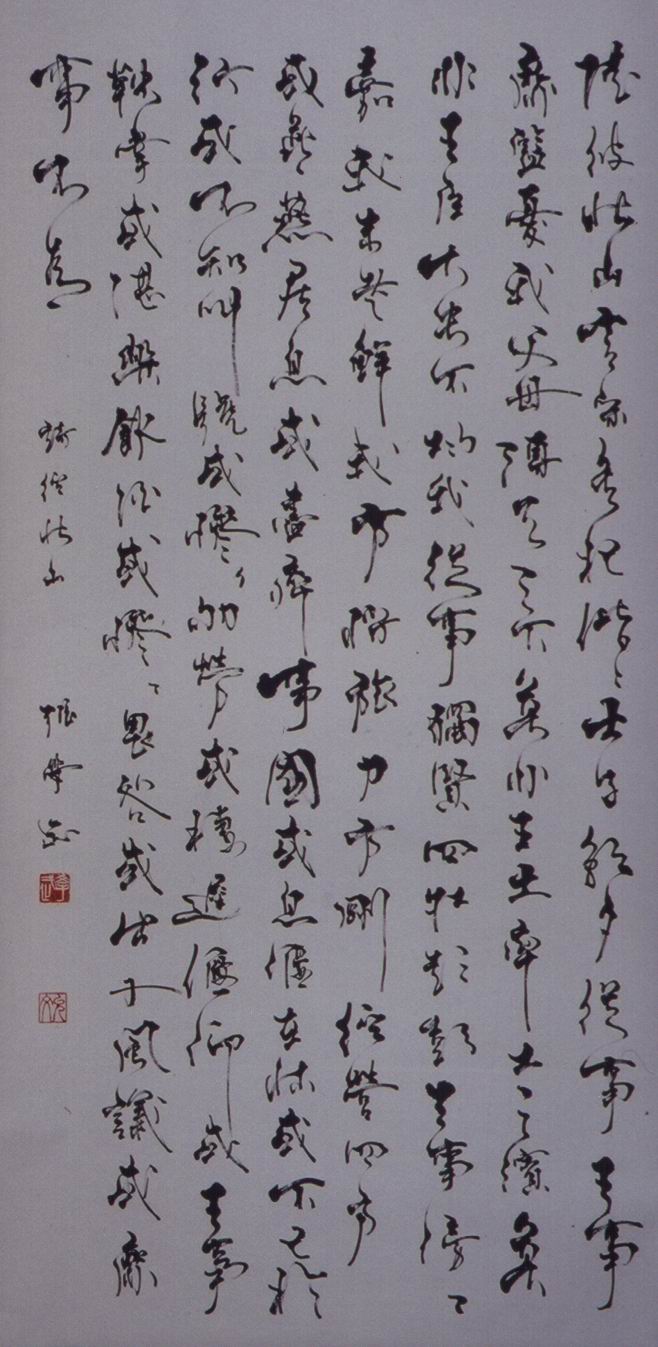 陟彼北山言采其杞偕〻士子朝夕從事王事
靡盬憂我父母溥天之下莫非王土率土之濱莫
非王臣大夫不均我從事獨賢四牡彭彭王事傍〻
嘉我未老鮮我方將旅力方剛經營四方
或燕燕居息或盡瘁事國或息偃在牀或不已於
行或不知叫號或慘〻劬勞或棲遲偃仰或王事
鞅掌或湛樂飲酒或慘〻畏咎或出入風議或靡
事不為 詩經北山